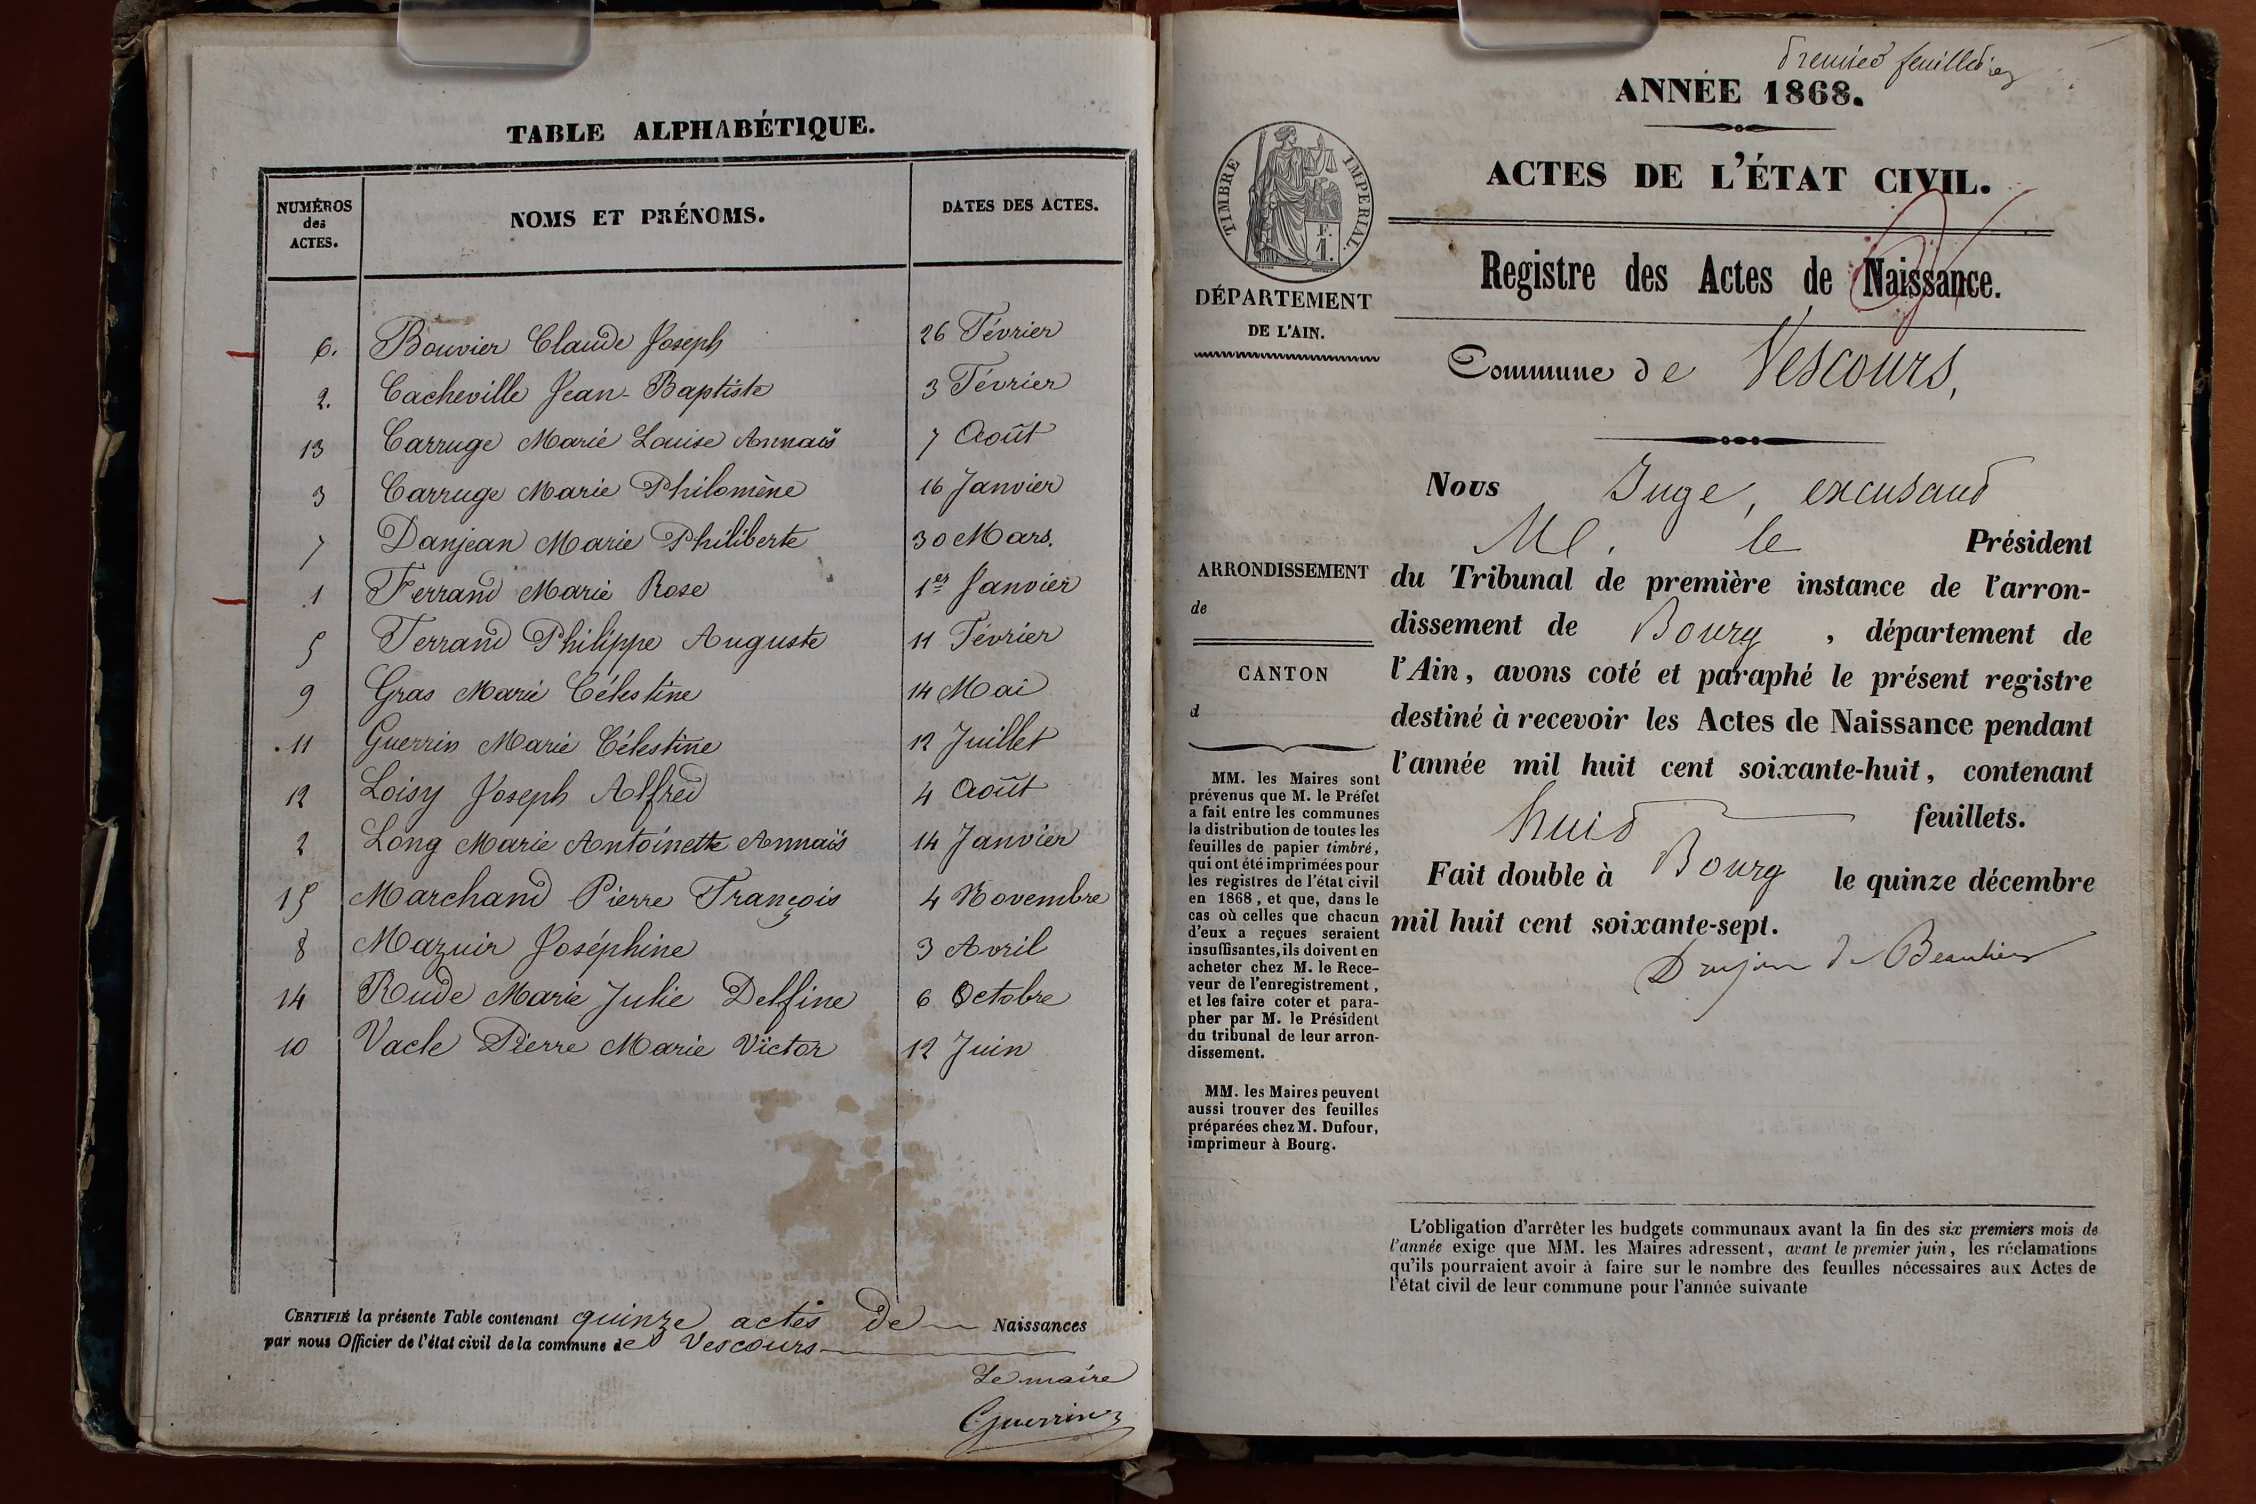 TABLE ALPHABÉTIQUE.
NUMÉROS des ACTES. NOMS ET PRÉNOMS. DATES DES ACTES.
6. Bouvier Claude Joseph 26 Février
2. Cacheville Jean-Baptiste 3 Février
13 Carruge Marie Louise Annaïs 7 Août
3 Carruge Marie Philomène 16 Janvier
7 Danjean Marie Philiberte 30 Mars.
1 Ferrand Marie Rose 1er Janvier
5 Ferrand Philippe Auguste 11 Février
9 Gras Marie Célestine 14 Mai
11 Guerrin Marie Célestine 12 Juillet
12 Loisy Joseph Alfred 4 Août
2 Long Marie Antoinette Annaïs 14 Janvier
15 Marchand Pierre François 4 Novembre
8 Mazuir Joséphine 3 Avril
14 Rude Marie Julie Delfine 6 Octobre
10 Vacle Pierre Marie Victor 12 Juin
CERTIFIÉ la présente Table contenant quinze actes de Naissances
par nous Officier de l'état civil de la commune de Vescours
Le maire
Guerrin
feuillet
ANNÉE 1868.
ACTES DE L'ÉTAT CIVIL.
TIMBRE IMPERIAL.
F.
1.
Registre des Actes de Naissance.
DÉPARTEMENT
DE L'AIN.
Commune de Vescours,
Nous Juge, excusant
M. le Président
du Tribunal de première instance de l'arron-
dissement de Bourg, département de
l'Ain, avons coté et paraphé le présent registre
destiné à recevoir les Actes de Naissance pendant
l'année mil huit cent soixante-huit, contenant
huit feuillets.
Fait double à Bourg le quinze décembre
mil huit cent soixante-sept.
Drujon de Beaulieu
ARRONDISSEMENT
de
CANTON
d
MM. les Maires sont
prévenus que M. le Préfet
a fait entre les communes
la distribution de toutes les
feuilles de papier timbré,
qui ont été imprimées pour
les registres de l'état civil
en 1868, et que, dans le
cas où celles que chacun
d'eux a reçues seraient
insuffisantes, ils doivent en
acheter chez M. le Rece-
veur de l'enregistrement,
et les faire coter et para-
pher par M. le Président
du tribunal de leur arron-
dissement.
MM. les Maires peuvent
aussi trouver des feuilles
préparées chez M. Dufour,
imprimeur à Bourg.
L'obligation d'arrêter les budgets communaux avant la fin des six premiers mois de
l'année exige que MM. les Maires adressent, avant le premier juin, les réclamations
qu'ils pourraient avoir à faire sur le nombre des feuilles nécessaires aux Actes de
l'état civil de leur commune pour l'année suivante